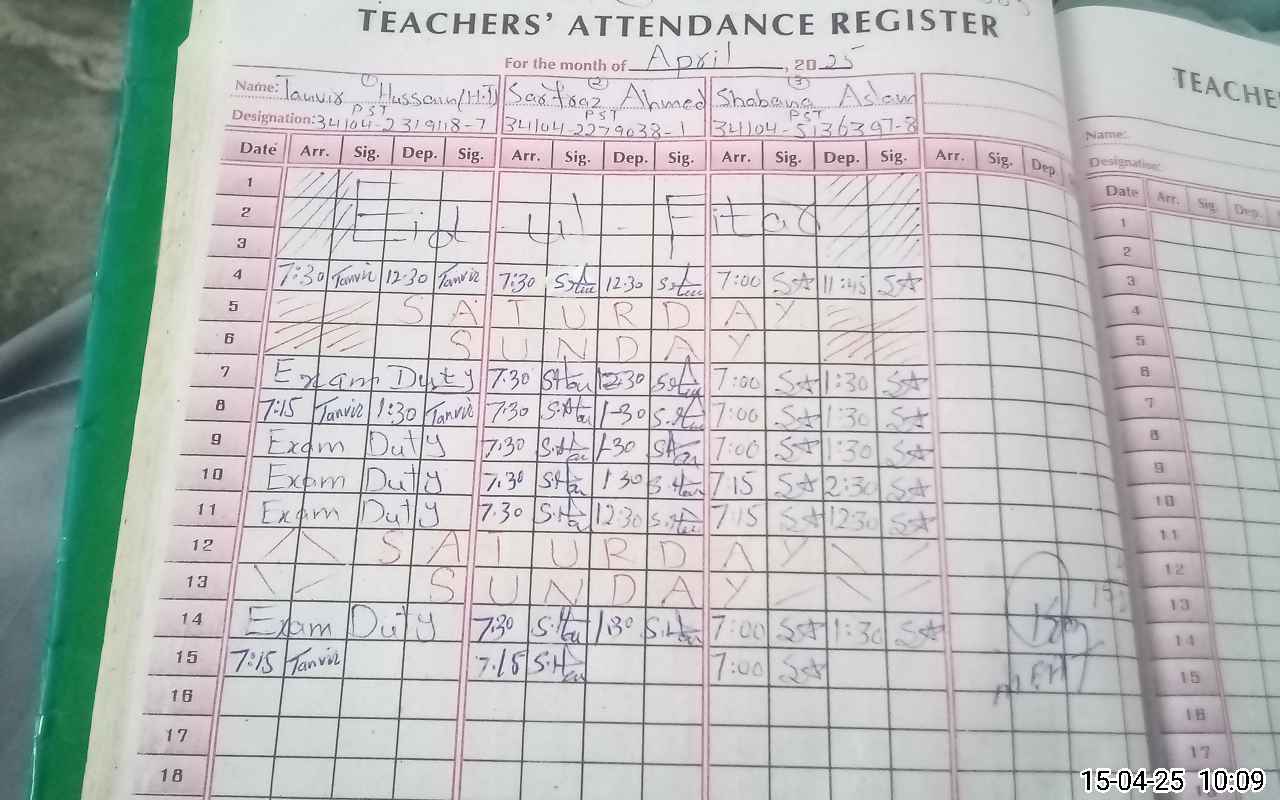 TEACHERS' ATTENDANCE REGISTER
For the month of April, 2025
Name: Tanvir Hussain (H.T) Sarfraz Ahmed Shabana Aslam
① ② ③
PST PST PST
Designation: 34104-2319118-7 34104-2279038-1 34104-5136397-8
Date Arr. Sig. Dep. Sig. Arr. Sig. Dep. Sig. Arr. Sig. Dep. Sig. Arr. Sig. Dep.
1
2 Eid - ul - Fitar
3
4 7:30 Tanvir 12:30 Tanvir 7:30 12:30 7:00 11:45
5 SATURDAY
6 SUNDAY
7 Exam Duty 7:30 12:30 7:00 1:30
8 7:15 Tanvir 1:30 Tanvir 7:30 1-30 7:00 1:30
9 Exam Duty 7:30 1-30 7:00 1:30
10 Exam Duty 7.30 1 30 7:15 2:30
11 Exam Duty 7.30 12:30 7:15 12:30
12 SATURDAY
13 SUNDAY
14 Exam Duty 7:30 1:30 7:00 1:30
15 7:15 Tanvir 7.15 7:00
16
17
18
TEACHE
Name:
Designation:
Date Arr. Sig. Dep.
1
2
3
4
5
6
7
8
9
10
11
12
13
14
15
16
17
15-04-25 10:09